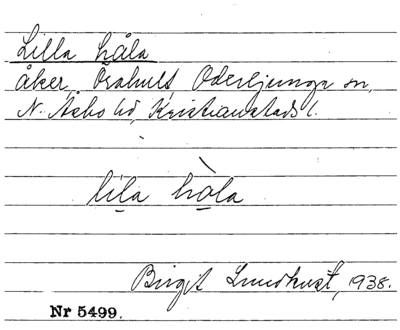 Lilla håla
åker, Örahult Oderljunga sn,
N. Åsbo hd, Kristianstads l.
lila håla
Birgit Lundkvist, 1938.
Nr 5499.